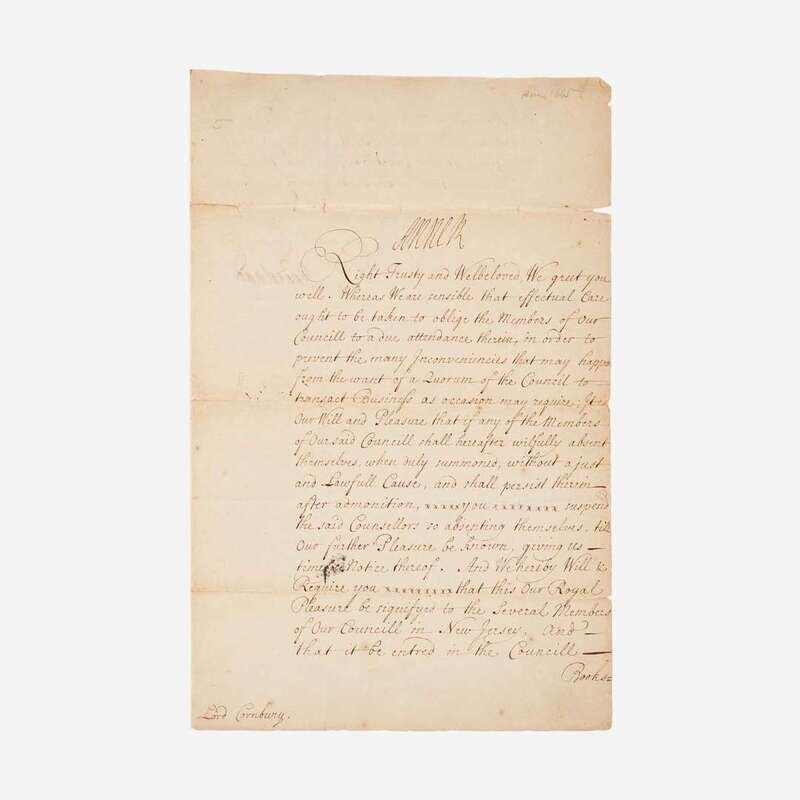 5
Anne R
Right Trusty and Welbeloved, We greet you
well. Whereas We are sensible that effectual Care
ought to be taken to oblige the Members of Our
Councill to a due attendance therein, in order to
prevent the many Inconveniencies that may happen
from the want of a Quorum of the Council to
transact Business as occasion may require; It is
Our Will and Pleasure that if any of the Members
of Our said Councill shall hereafter wilfully absent
themselves, when duly summoned, without a just
and Lawfull Cause, and shall persist therein
after admonition, you suspend
the said Counsellors so absenting themselves, till
Our further Pleasure be known, giving us
timely Notice thereof. And We hereby Will &
Require you that this Our Royal
Pleasure be signifyed to the Several Members
of Our Councill in New Jersey, And
that it be entred in the Councill
Books=
Lord Cornbury.